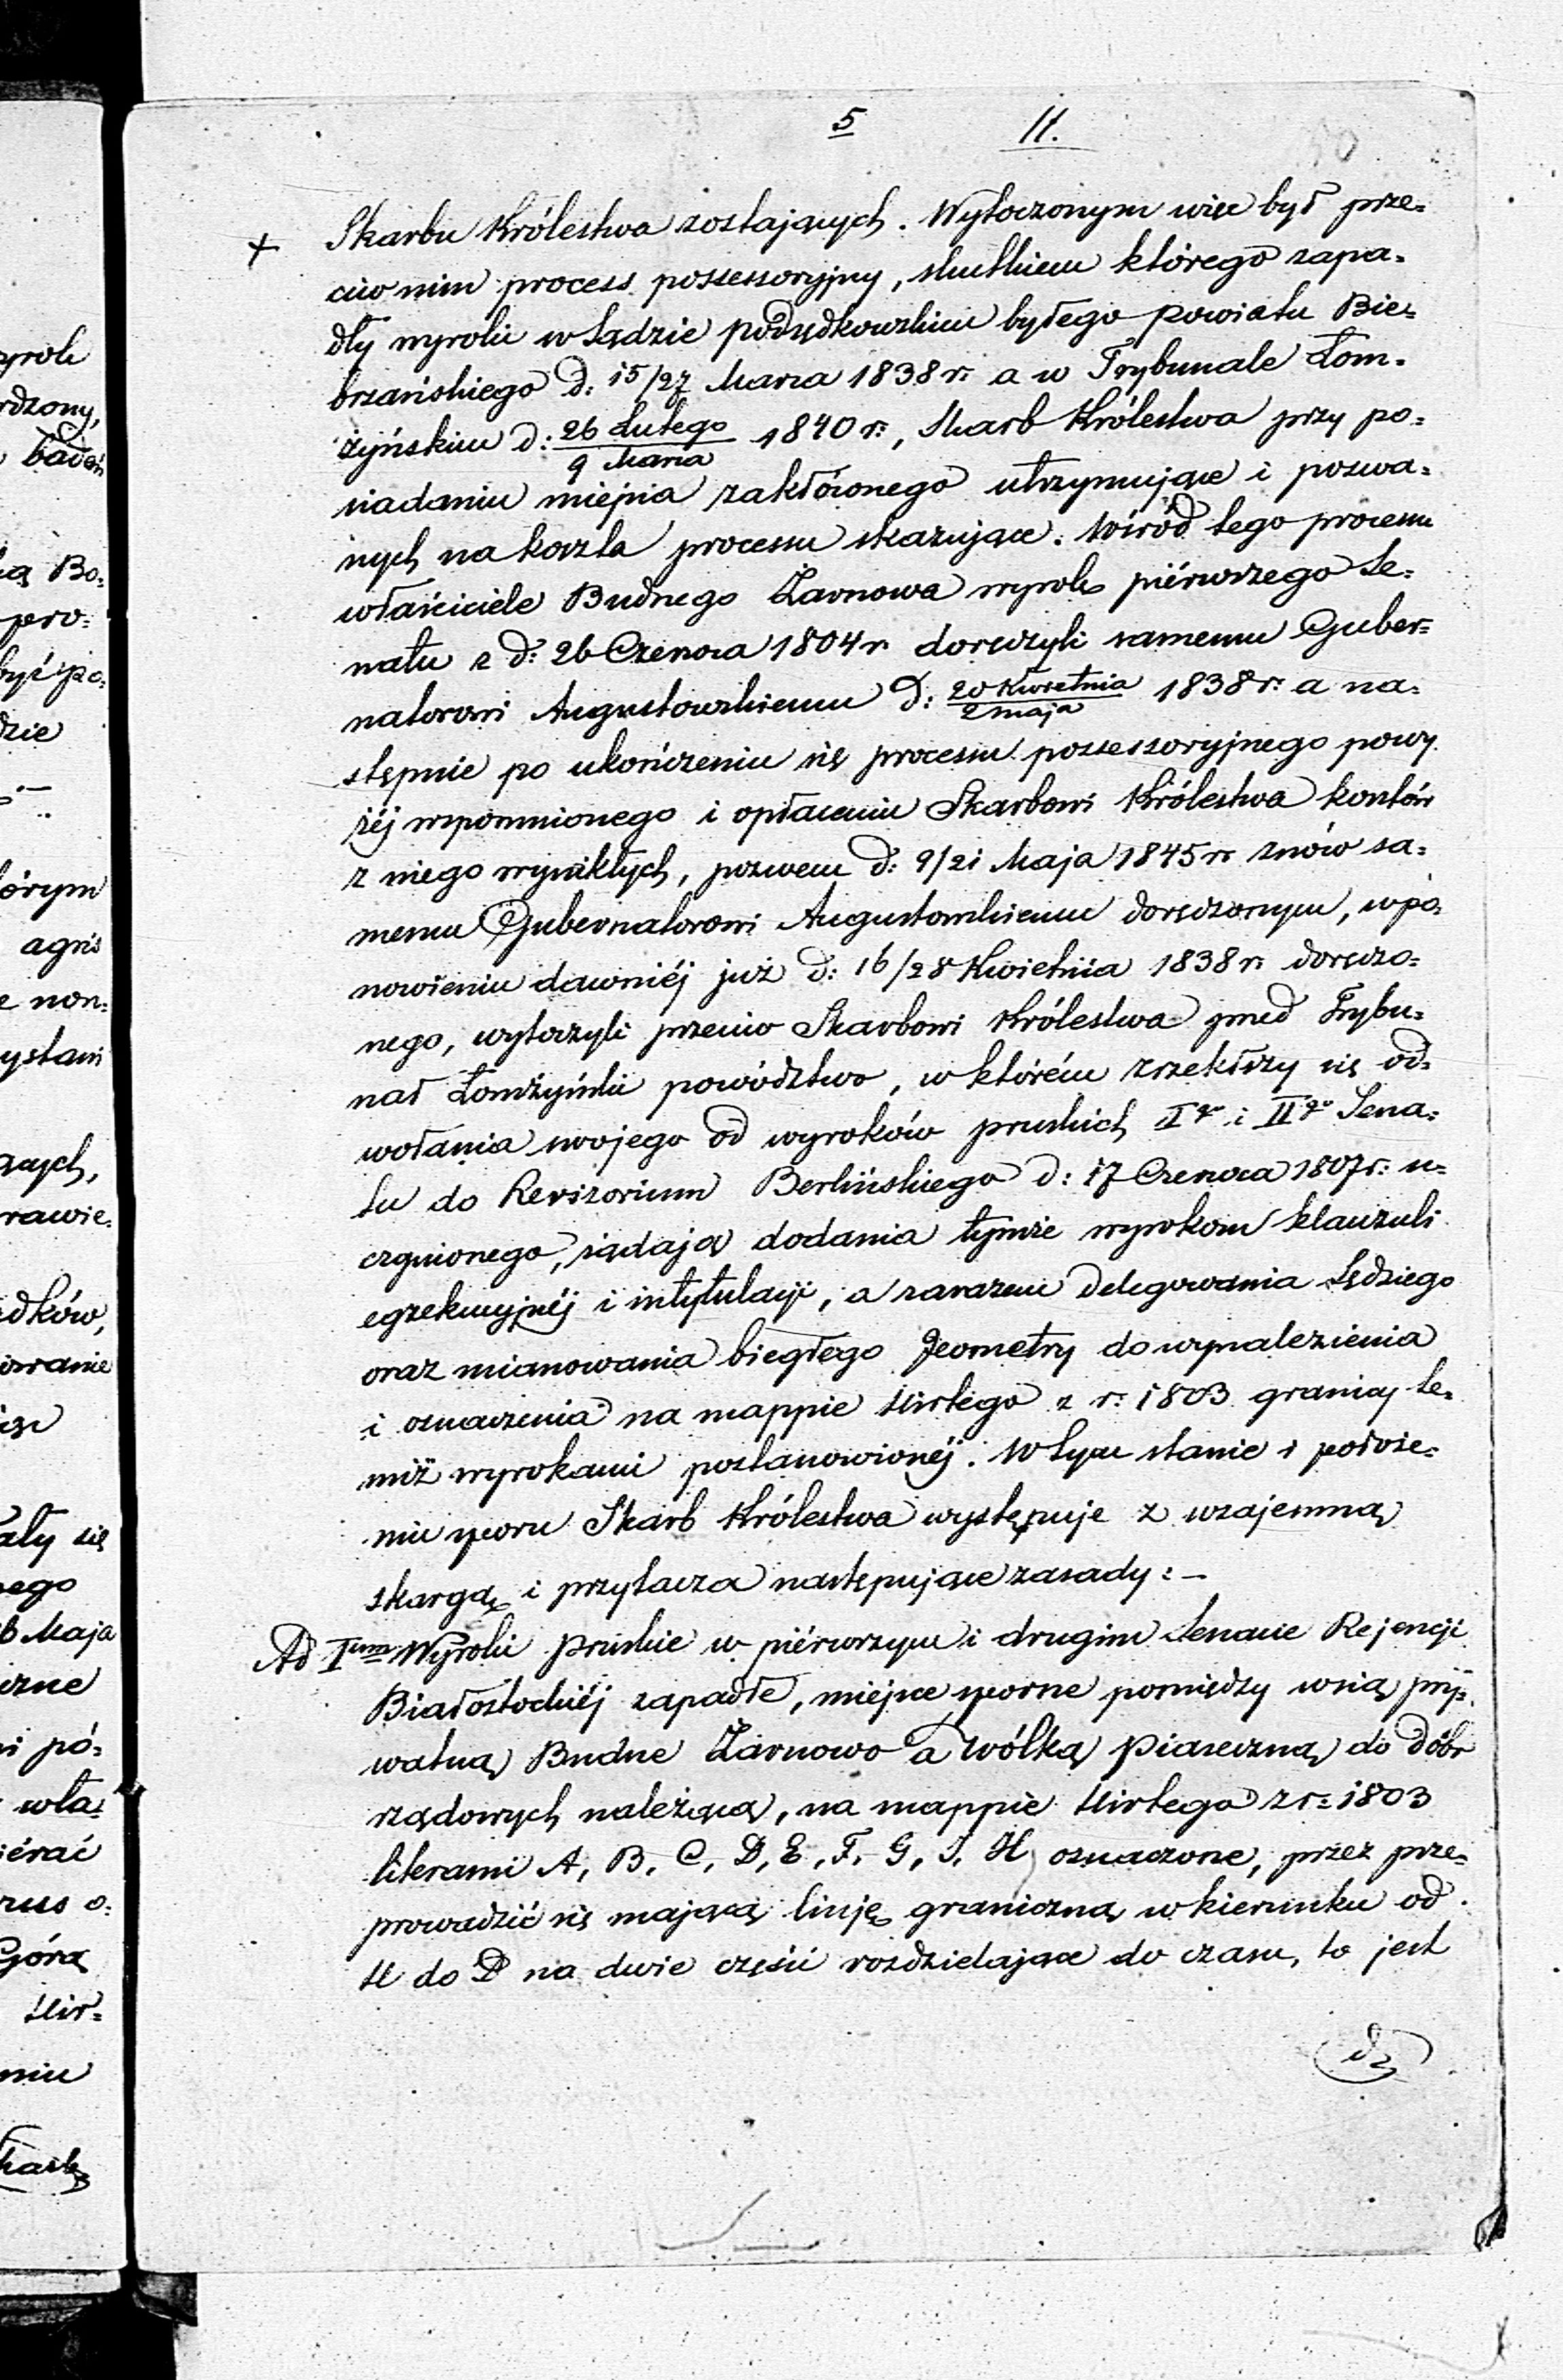 5 11.
Skarbu Królestwa zostających. Wytoczonym więc był prze=
+ ciw nim process possessoryjny, skutkiem którego zapa=
dły wyroki w Sądzie podsędkowskim byłego powiatu Bie=
brzańskiego d: 15/27 Marca 1838 r: a w Trybunale Łom=
żyńskim d: 26 Lutego/9 Marca 1840 r:, Skarb Królestwa przy po=
siadaniu miejsca zakłóconego utrzymujące i pozwa=
nych na koszta processu skazujące. Wśród tego processu
właściciele Budnego Żarnowa wyrok piérwszego Se=
natu z d: 26 Czerwca 1804 r. doręczyli samemu Guber=
natorowi Augustowskiemu d: 20 Kwietnia/2 maja 1838 r: a na=
stępnie po ukończeniu się processu possessoryjnego powy
żéj wspomnionego i opłaceniu Skarbowi Królestwa kosztów
z niego wynikłych, pozwem d: 9/21 Maja 1845 r. znów sa=
memu Gubernatorowi Augustowskiemu doręczonym, w po=
nowieniu dawniéj już d: 16/28 Kwietnia 1838 r. doręczo=
nego, wytoczyli przeciw Skarbowi Królestwa przed Trybu=
nał Łomżyński powództwo, w którém zrzekłszy się od=
wołania swojego od wyroków pruskich Igo i IIgo Sena=
tu do Revisorium Berlińskiego d: 17 Czerwca 1807 r: u=
czynionego, żądają dodania tymże wyrokom klauzuli
egzekucyjnéj i intytulacji, a zarazem delegowania Sędziego
oraz mianowania biegłego Jeometry do wynalezienia
i oznaczenia na mappie Hirtego z r: 1803 granicy te=
miż wyrokami postanowionéj. W tym stanie i położe=
niu sporu Skarb Królestwa występuje z wzajemną
skargą i przytacza następujące zasady: –
Ad Ium Wyroki pruskie w piérwszym i drugim Senacie Rejencji
Białostockiéj zapadłe, miejsce sporne pomiędzy wsią pry=
watną Budne Żarnowo a Wólką Piaseczną do dóbr
rządowych należącą, na mappie Hirtego z r: 1803
literami A, B, C, D, E, F, G, J, H oznaczone, przez prze=
prowadzić się mającą linję graniczną w kierunku od
H do D na dwie części rozdzielające do czasu, to jest